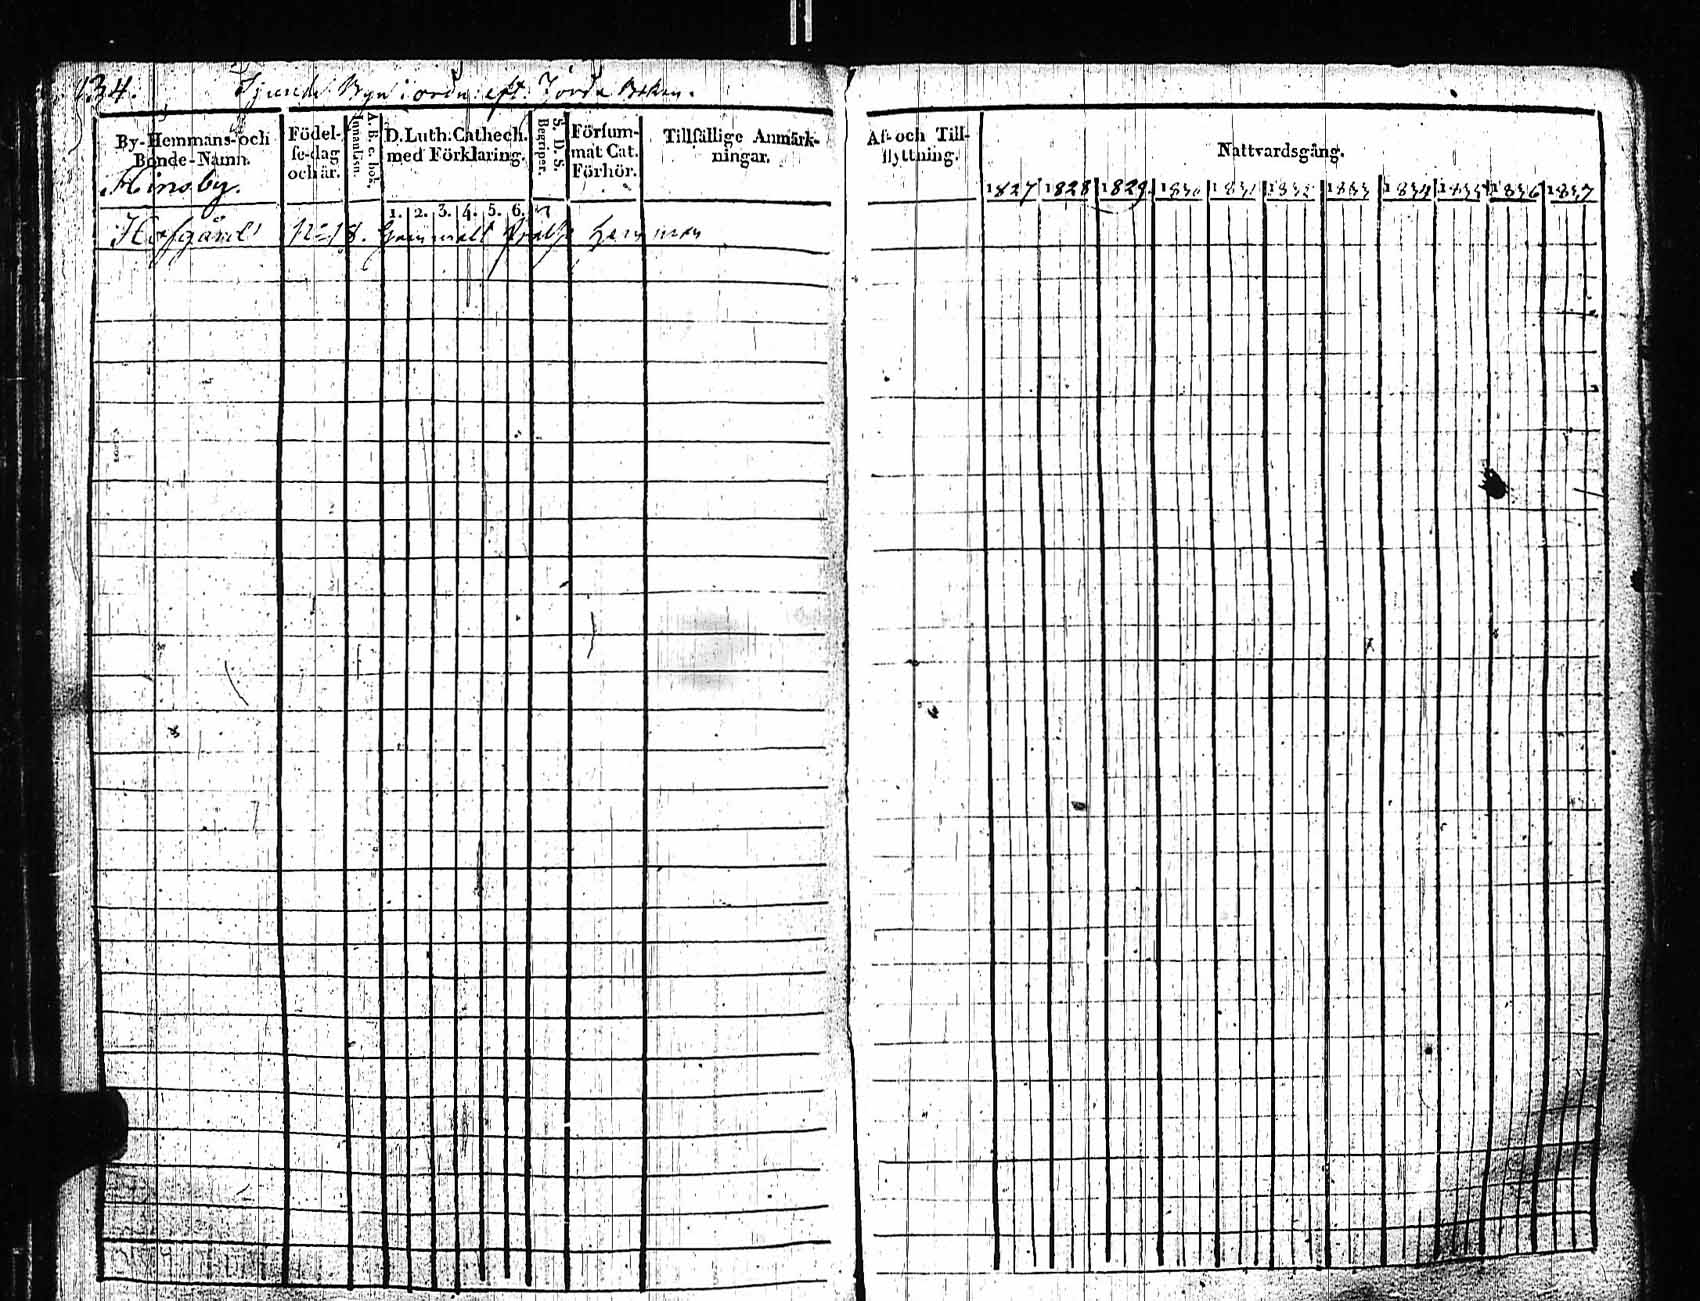 234.
Tjuende Byn i ordn: eft. Jorda Boken.
By-Hemmans-och
Bonde-Namn.
Hinsby.
Födel-
se-dag
och år.
A. B. c. bok.
Innanläsn.
D. Luth. Cathech.
med Förklaring.
1. 2. 3. 4. 5. 6.
S. D. S.
Begriper.
Försum-
mat Cat.
Förhör.
Tillfällige Anmärk-
ningar.
Hofgård N:o 18. Gammalt Hemman
Af- och Till-
flyttning.
Nattvardsgång.
1827 1828 1829 1830 1831 1832 1833 1834 1835 1836 1837